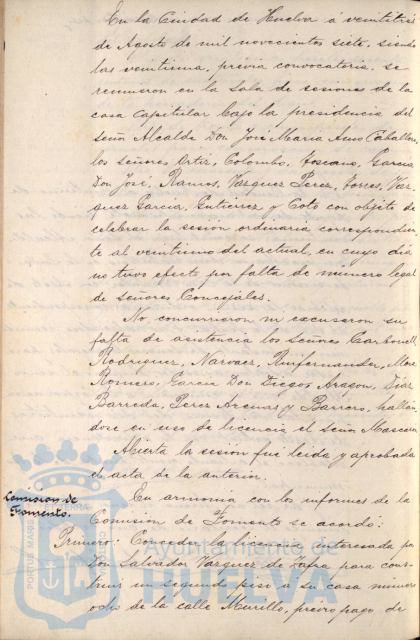 En la Ciudad de Huelva á veintitres
de Agosto de mil novecientos siete, siendo
las veintiuna, previa convocatoria, se
reunieron en la Sala de sesiones de la
casa Capitular bajo la presidencia del
Señor Alcalde Don José Maria Amo Caballero,
los señores Ortiz, Colombo, Toscano, Garcia
Don José, Ramos, Vazquez Perez, Torres, Vaz-
quez Garcia, Gutierrez y Coto con objeto de
celebrar la sesión ordinaria correspondien-
te al veintiuno del actual, en cuyo dia
no tuvo efecto por falta de número legal
de señores Concejales.
No concurrieron ni excusaron su
falta de asistencia los señores Carbonell,
Rodriguez, Narvaez, More
Romero, Garcia Don Diego, Aragon, Diaz
Barreda, Perez Arenas y Barrero, hallan-
dose en uso de licencia el señor
Abierta la sesión fué leida y aprobada
el acta de la anterior.
Comision de
Fomento.
En armonia con los informes de la
Comisión de Fomento se acordó:
Primero: Conceder la licencia interesada por
Don Salvador Vazquez de Zafra para cons-
truir un segundo piso á su casa número
ocho de la calle Murillo, previo pago de
Ayuntamiento de
HUELVA